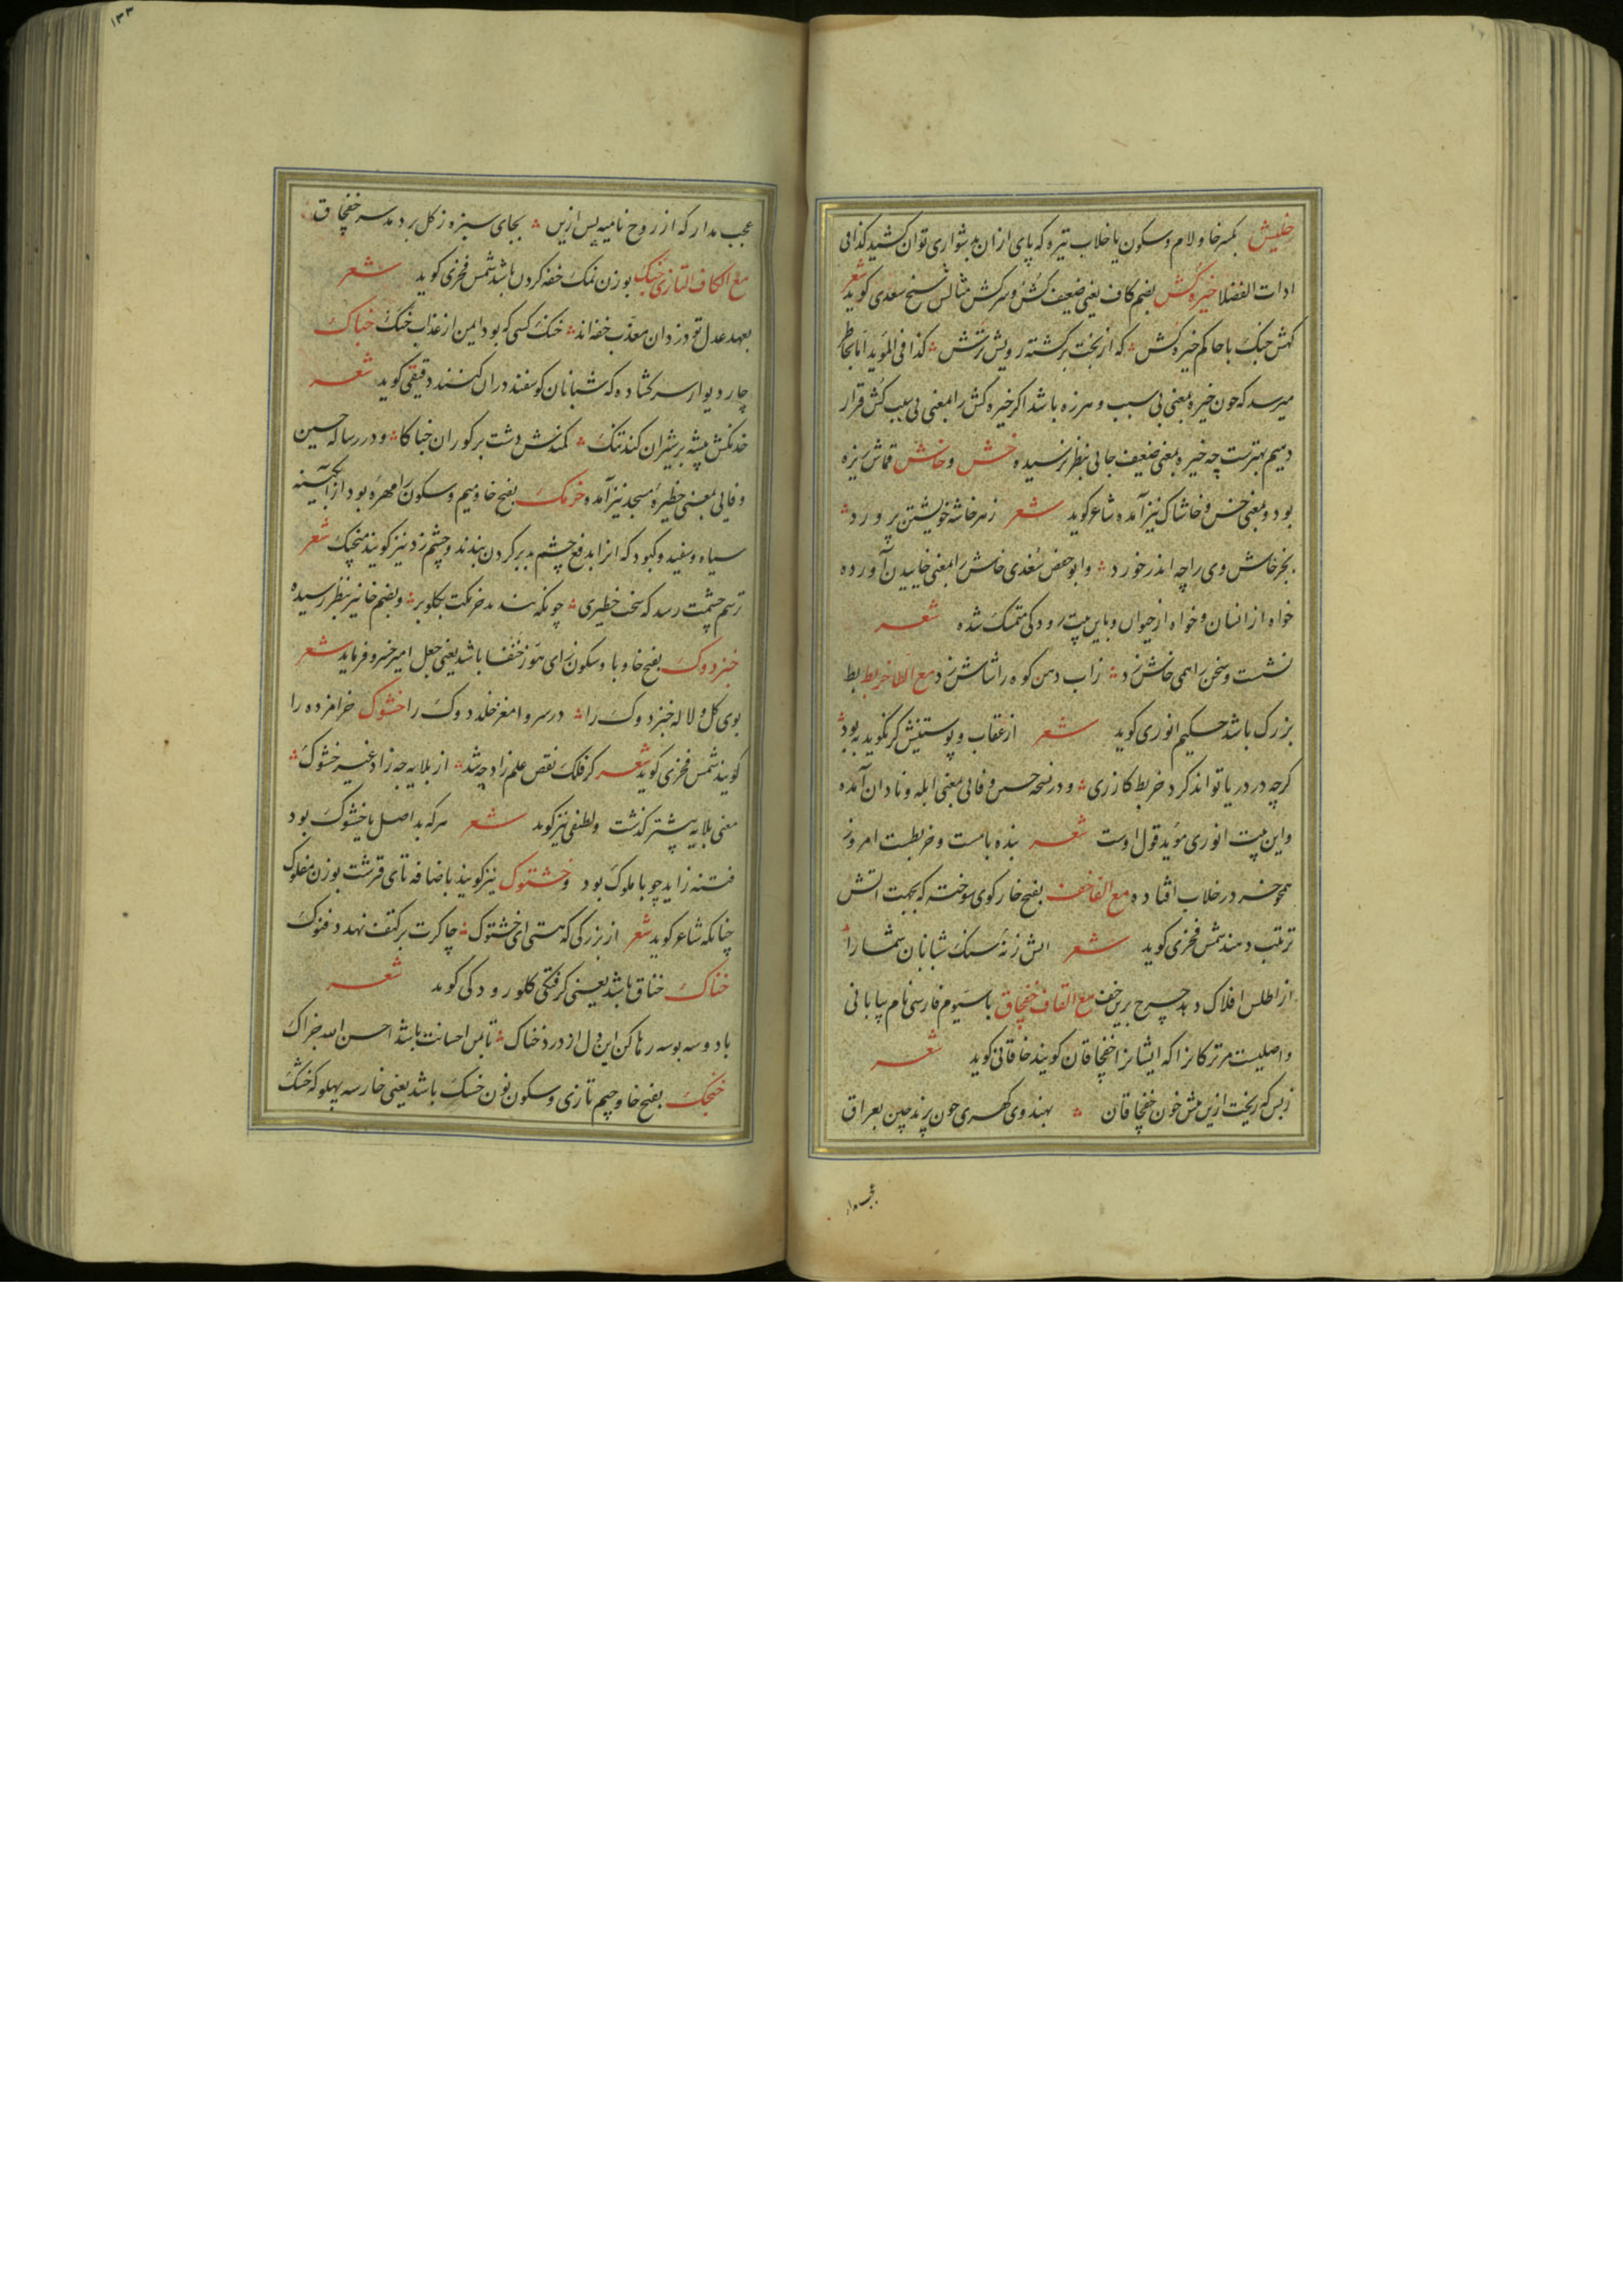 خلیش بکسر خا و لام و سکون یا خلاب تیره که پای ازان بدشواری توان کشید کذا فی
ادات الفضلا خیره کش بضم کاف یعنی ضعیف کُش و سرکش مثالش شیخ سعدی کوید شعر
مکش جنک با حاکم خیره کش ؞ که از بخت برکشته رویش ترش ؞ کذا فی المؤید اما بخاطر
میرسد که چون خیره بمعنی بی سبب و هرزه باشد اکر خیره کش را بمعنی بی سبب کش قرار
دهیم بهترست چه خیره بمعنی ضعیف جایی بنظر نرسیده خش و خاش قماش ریزه
بود و بمعنی خس و خاشاک نیز آمده شاعر کوید شعر زهر خاشه خویشتن پرورد ؞
بجز خاش وی را چه اندر خورد ؞ و ابو حفص سُغدی خاش را بمعنی خاییدن آورده
خواه از انسان و خواه از حیوان و باین بیت رودکی متمسک شده شعر
نشست و سخن را همی خاش زد ؞ زاب دهن کوه را شاش زد مع الطا خربط بط
بزرک باشد حکیم انوری کوید شعر از عقاب و پوستینش کر نکوید به بود ؞
کرچه در دریا تواند کرد خربط کازری ؞ و در نسخه حسین وفائی بمعنی ابله و نادان آمده
واین بیت انوری مؤید قول اوست شعر بنده بامست و خربطست امروز
همچو خر در خلاب افتاده مع الفا خف بفتح خا رکوی سوخته که بجهت اتش
ترتیب دهند شمس فخری کوید شعر اتش زنهٔ سنک شبانان شما را ؞
از اطلس افلاک دهد چرخ برین خف مع القاف خفچاق با سیوم فارسی نام بیابانی
و اصلیست مر ترکانرا که ایشانرا خفچاقان کویند خاقانی کوید شعر
زبس کریخت ازین پیش خون خفچاقان ؞ بهندوی کهری چون پرند چین بعراق
عجب مدار
۱۳۳
عجب مدار که از روح نامیه پس ازین ؞ بجای سبزه ز کل بر دمد سر خفچاق
مع الکاف التازی خبک بوزن نمک خفه کردن باشد شمس فخری کوید شعر
بعهد عدل تو دزدان معذب خفه اند ؞ خنک کسی که بود ایمن از عذاب خبک خباک
چار دیوار سر کشاده که شبانان کوسفند دران کنند دقیقی کوید شعر
خدنکش بیشه بر شیران کند تنک ؞ کمندش دشت بر کوران خباکا ؞ و در رساله حسین
وفایی بمعنی حظیرهٔ مسجد نیز آمده خرمک بفتح خا و میم و سکون را مهره بود از آبکینه
سیاه و سفید و کبود که انرا بدفع چشم بد بر کردن بندند و چشم زد نیز کویند منجیک شعر
ترسم چشمت رسد که سخت خطیری ؞ چونکه نبندند خرمکت بکلو بر ؞ و بضم خا نیز بنظر رسیده
خبزدوک بفتح خا و با و سکون زای هوز خنفسا باشد یعنی جعل امیر خسرو فرماید شعر
بوی کل و لاله خبزدوک را ؞ در سر و امغز خلد دوک را خشوک حرامزاده را
کویند شمس فخری کوید شعر کر فلک نقص علم زاد چه شد ؞ از بلایه چه زاد غیر خشوک ؞
معنی بلایه پیشتر کذشت و لطیفی نیز کوید شعر هر که بد اصل یا خشوک بود
فتنه زاید چو با ملوک بود و خشتوک نیز کویند باضافه تای قرشت بوزن مفلوک
چنانکه شاعر کوید شعر از بزرکی که هستی ای خشتوک ؞ چاکرت بر کتف نهد دفنوک
خناک خناق باشد یعنی کرفتکی کلو رودکی کوید شعر
با دو سه بوسه رها کن این دل از درد خناک ؞ تا بمن احسانت باشد احسن الله جزاک
خنجک بفتح خا و جیم تازی و سکون نون خسک باشد یعنی خار سه پهلو که خشک